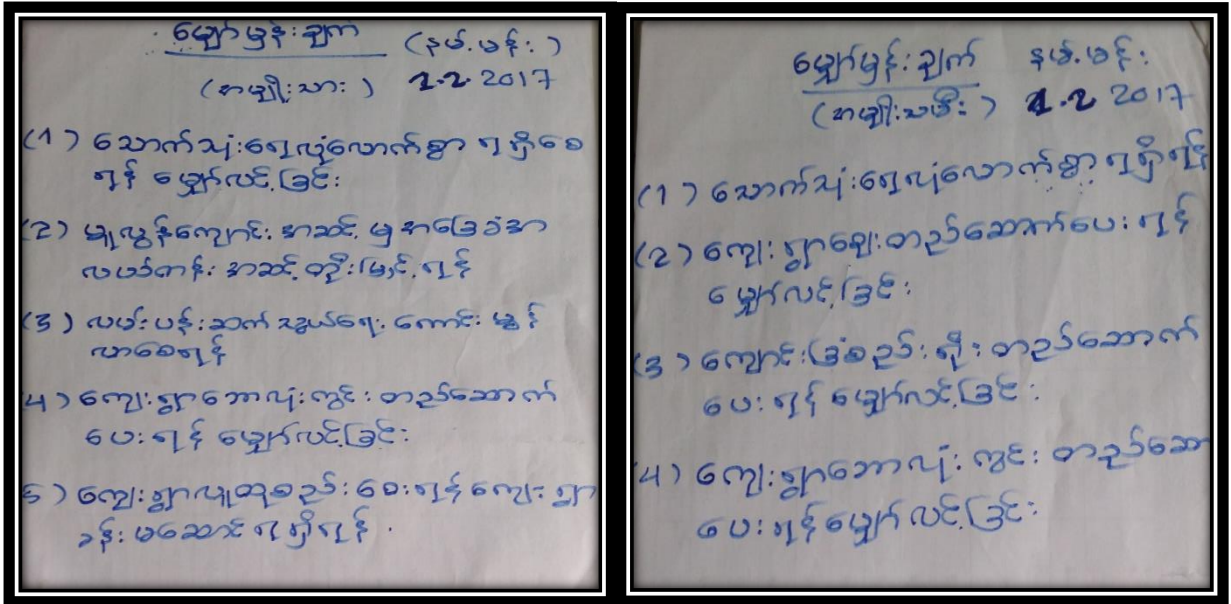 မျှော်မှန်းချက် (နမ့်.မန်း)
(အမျိုးသား) 2.2.2017
(1) သောက်သုံးရေလုံလောက်စွာ ရရှိစေ
ရန် မျှော်လင့်ခြင်း
(2) မူလွန်ကျောင်း အဆင့် မှ အခြေခံအာ
လယ်တန်း အဆင့် တိုးမြှင့်ရန်
(3) လမ်းပန်းဆက်သွယ်ရေး ကောင်းမွန်
လာစေရန်
4) ကျေးရွာဘောလုံးကွင်း တည်ဆောက်
ပေးရန် မျှော်လင့်ခြင်း
5) ကျေးရွာလူထုစည်းဝေးရန် ကျေးရွာ
ခန်းမဆောင် ရရှိရန်.
မျှော်မှန်းချက် နမ့်.မန်း
(အမျိုးသမီး) 2.2 2017
(1) သောက်သုံးရေလုံလောက်စွာ ရရှိရန်
(2) ကျေးရွာဈေးတည်ဆောက်ပေးရန်
မျှော်လင့်ခြင်း
(3) ကျောင်းခြံစည်းရိုးတည်ဆောက်
ပေးရန် မျှော်လင့်ခြင်း
4) ကျေးရွာဘောလုံးကွင်း တည်ဆော
ပေးရန်မျှော်လင့်ခြင်း